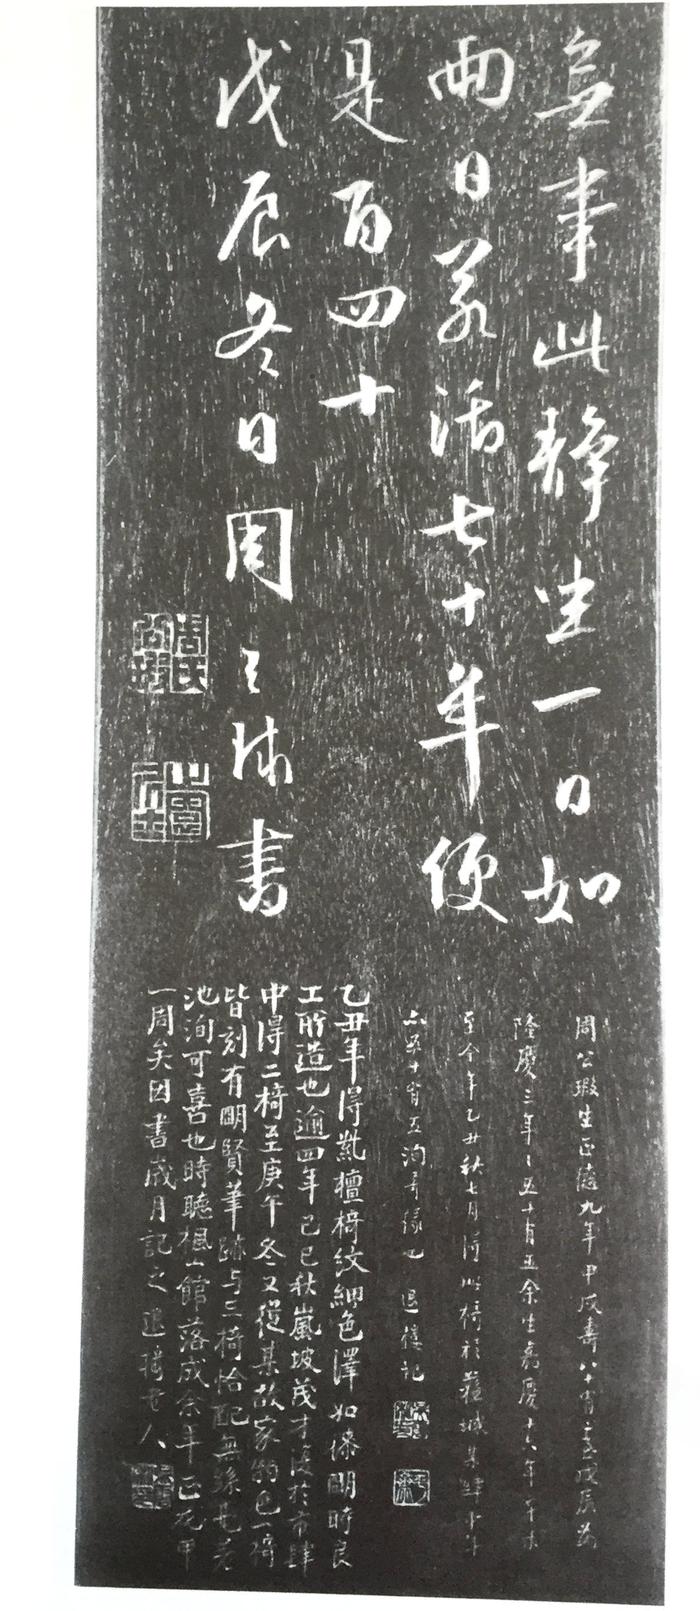 無事此靜坐一日如
兩日若活七十年便
是百四十
戊辰冬日周天球書
周公瑕生正德九年甲戌壽八十有二戊辰為
隆慶三年年五十有五余生嘉慶十六年辛未
至今年乙丑秋七月得此椅於舊城某肆中年
亦五十有五洵奇緣也 退樓記
乙丑年得紫檀椅紋細色澤如漆明時良
工所造也逾四年己巳秋嵐坡茂才復於市肆
中得二椅至庚午冬又從某故家物色一椅
皆刻有明賢筆跡与三椅恰配無絲毫差
池洵可喜也時聽楓山館落成余年正花甲
一周矣因書歲月記之退樓老人